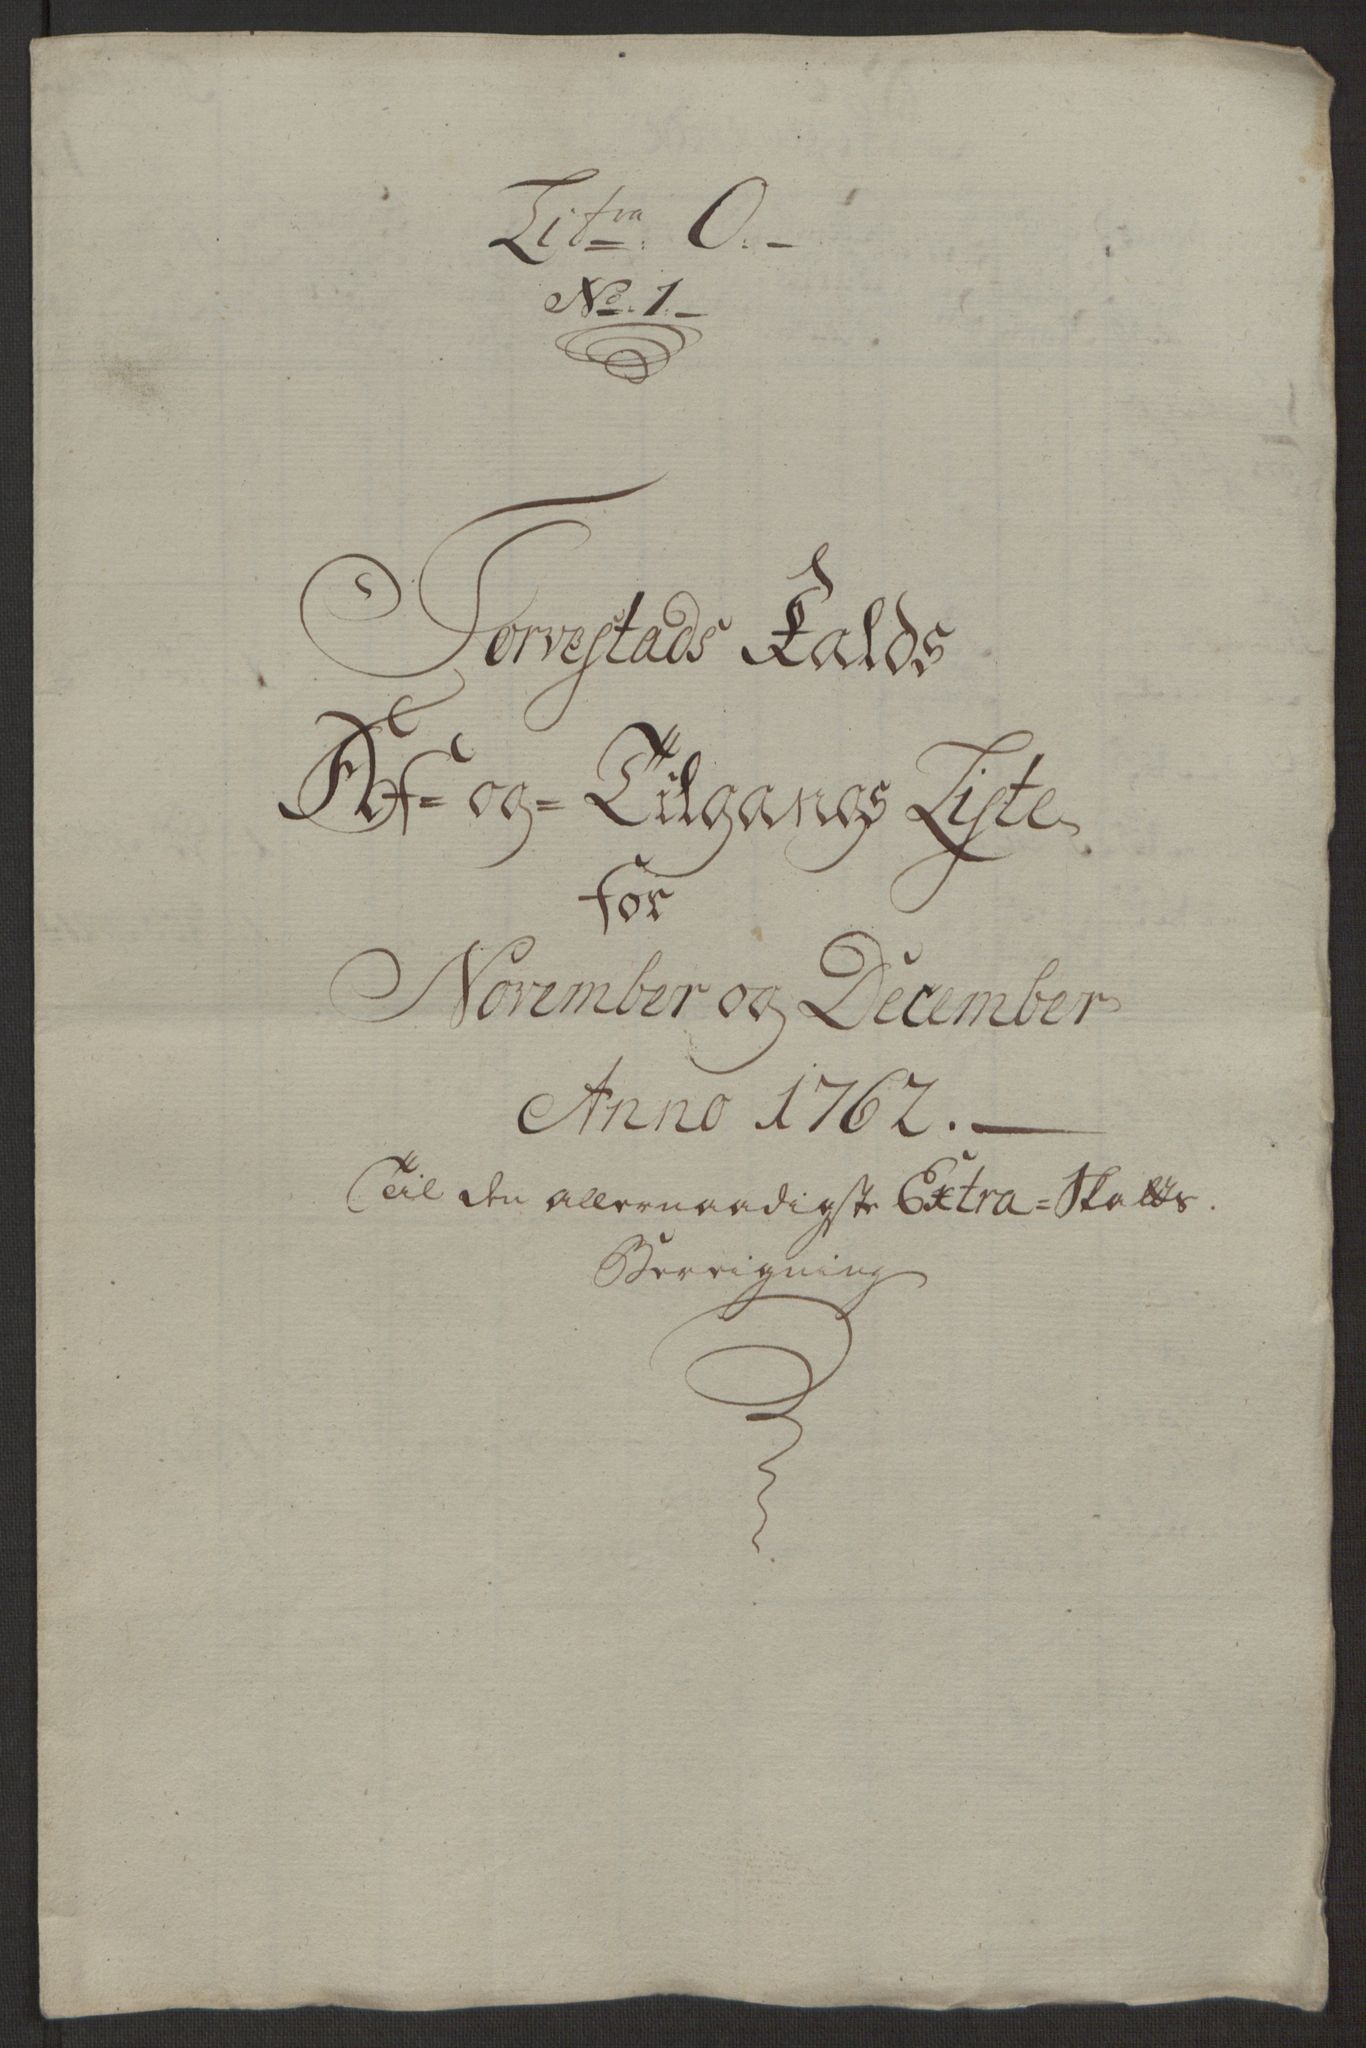 Litra. O. –
No. 1. –
Torvestads Kalds
Af= og= Tilgangs Liste
for
November og December
Anno 1762. —
Til den allernaadigste Extra=Skatts.
Berrigning